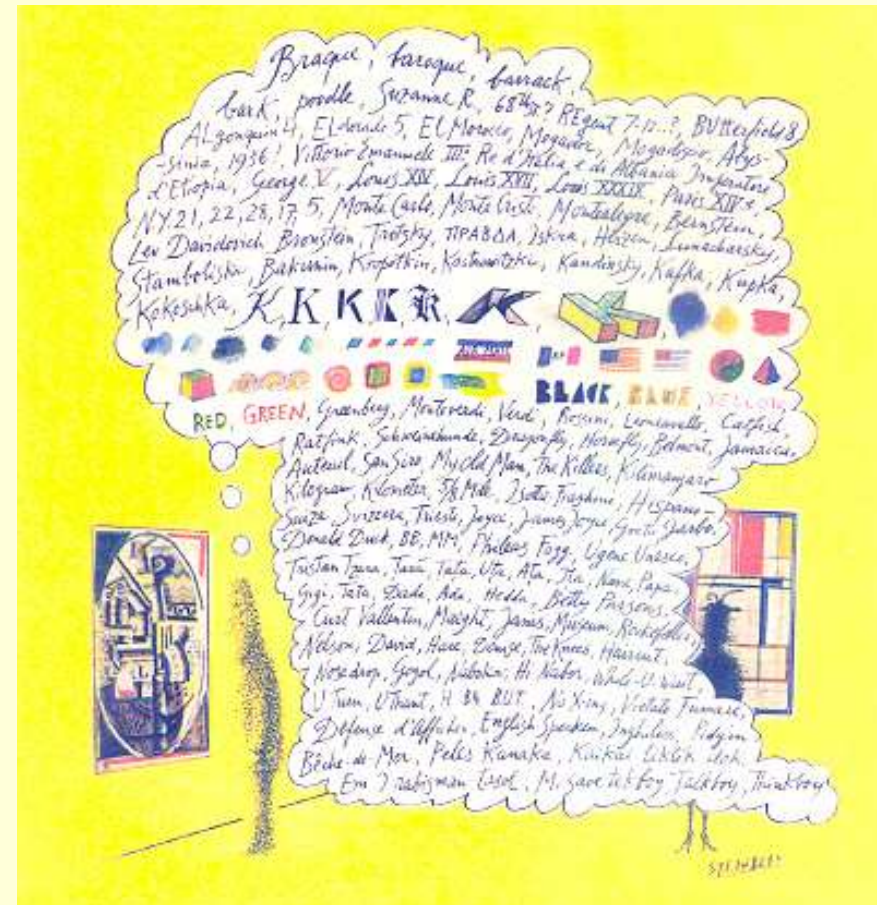 Braque, baroque, barrack,
bark, poodle, Suzanne R, 68th St? REgent 7-12..?, BUtterfield 8
ALgonquin 4, ELdorado 5, El Morocco, Mogador, Mogadiscio, Abys-
-sinia, 1936! Vittorio Emanuele III° Re d'Italia e di Albania Imperatore
d'Etiopia, George V, Louis XIV, Louis XVII, Louis XXXIX, Paris XIVe,
NY. 21, 22, 28, 17, 5, Monte Carlo, Monte Cristo, Montealegre, Bernstein,
Lev Davidovich Bronstein, Trotzky, ПРАВДА, Iskra, Herzen, Lunacharsky,
Stamboliski, Bakunin, Kropotkin, Kostrowitzky, Kandinsky, Kafka, Kupka,
Kokoschka, K, K, K, K, K, K,
BLACK, BLUE, YELLOW,
RED, GREEN, Greenberg, Monteverdi, Verdi, Rossini, Leoncavallo, Catfish,
Ratfink, Schweinehunde, Dragonfly, Horsefly, Belmont, Jamaica,
Auteuil, San Siro, My Old Man, The Killers, Kilimanjaro
Kilogram, Kilometer, 5/8 Mile, Isotta Fraschini, Hispano-
Suiza, Svizzera, Trieste, Joyce, James Joyce, Greta Garbo,
Donald Duck, BB, MM, Phileas Fogg, Ugene Unesco,
Tristan Tzara, Tata, Uta, Ata, Ita, Nana, Papa,
Gigi, Tata, Dada, Ada, Hedda, Betty Parsons,
Curt Valentin, Maeght, Janis, Museum, Rockefeller,
Nelson, David, Hare, The Knees, Haircut,
Nosedrop, Gogol, Nabokov, Hi Nabor, While-U-Wait,
U Turn, U Thant, BUT, No X-ing, Vietato Fumare,
Défense d'Afficher, English Spoken, Pidgin
Bêche-de-Mer, Kanaka, Kaikai Liklik
Em Talkboy, Thinkboy
STEINBERG